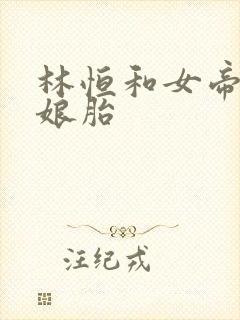 林恒和女帝
娘胎
汪纪戎